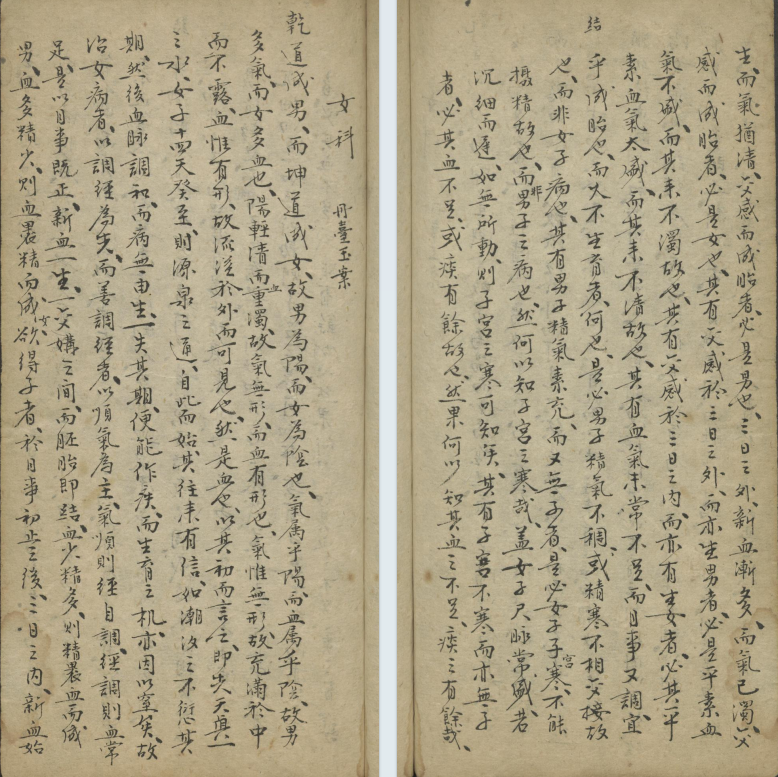 女科 丹臺玉案
乾道成男、而坤道成女、故男為陽而女為陰也、氣属乎陽、而血属乎陰故男
多氣、而女多血也、陽輕清而血重濁、故氣無形、而血有形也、氣惟無形、故充滿於中
而不露血惟有形、故流溢於外而可見也、然是血也、以其初而言之、即先天真一
之水、女子十四天癸至、則源泉之通、自此而始、其往耒有信、如潮汐之不愆其
期、然後血脉調和、而病無由生、一失其期、便能作疾、而生育之机、亦因以窒矣、故
治女病者、以調經為先、而善調經者、以順氣為主、氣順則經自調、經調則血常
足、是以月事既正、新血一生、一交媾之間、而胚胎即結、血少精多、則精裹血而成
男、血多精少、則血裹精而成女、欲得子者、於月事初止之後、三日之內、新血始
結
生而氣猶清、交感而成胎者、必是男也、三日之外、新血漸多、而氣已濁、交
感而成胎者、必是女也、其有交感於三日之外、而亦生男者、必是平素血
氣不盛、而其耒不濁故也、其有交感於三日之內、而亦有生女者、必其平
素血氣太盛、而其耒不清故也、其有血氣未常不足、而月事又調、宜
乎成胎也、而久不生育者、何也、是必男子精氣不稠、或精寒不相交接故
也、而非女子病也、其有男子精氣素充、而又無子者、是必女子子宮寒、不能
攝精故也、而非男子之病也、然何以知子宮之寒哉、蓋女子尺脉常盛、若
沉細而遲、如無所動、則子宮之寒可知矣、其有子宮不寒而亦無子
者、必其血不足、或痰有餘故也、然果何以知其血之不足、痰之有餘哉、